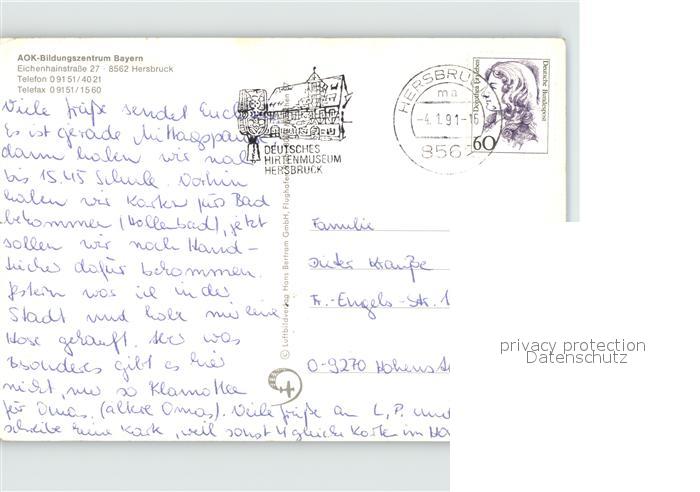 AOK-Bildungszentrum Bayern
Eichenhainstraße 27 · 8562 Hersbruck
Telefon 0 91 51/40 21
Telefax 0 91 51/15 60
Viele Grüße sendet Euch
Es ist gerade Mittagspau
dann haben wir noch
bis 15.45 Schule. Vorhin
haben wir Karten fürs Bad
bekommen (Hallenbad), jetzt
sollen wir noch Hand-
tücher dafür bekommen.
Gestern war ich in der
Stadt und habe mir eine
Hose gekauft. Aber was
besonderes gibt es hier
nicht, nur so Klamotten
für Omas. (ältere Omas). Viele Grüße an L, P. und
schreibe keine Karte, weil sonst 4 gleiche Karten im
DEUTSCHES
HIRTENMUSEUM
HERSBRUCK
HERSBRUCK
ma
-4.1.91-16
8562
Deutsche Bundespost
60
© Luftbildverlag Hans Bertram GmbH, Flughafen
Familie
Dieter Krauße
Fr.-Engels-Str. 1
O-9270 Hohenst
privacy protection
Datenschutz